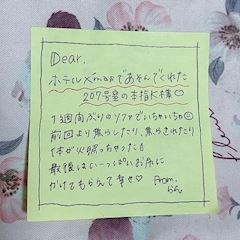 Dear.
ホテルX'masであそんでくれた
207号室の本指K様♡
1週間ぶりのソファでいちゃいちゃ
前回より焦らしたり、焦らされたり
体が火照っちゃった
最後はいーっぱいお有に
かけてもらえて幸せ♡
From.
らん